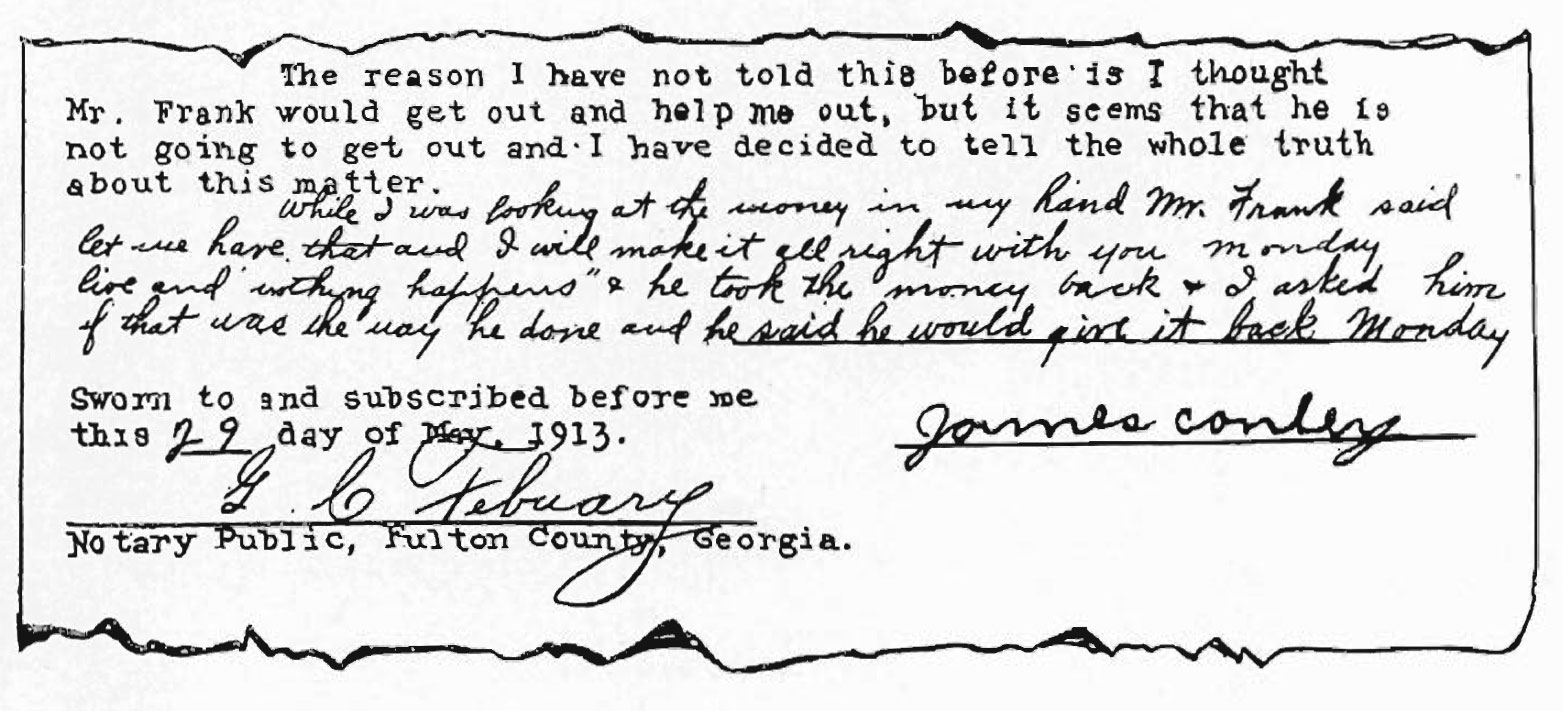 The reason I have not told this before is I thought
Mr. Frank would get out and help me out, but it seems that he is
not going to get out and I have decided to tell the whole truth
about this matter.
While I was looking at the money in my hand Mr. Frank said
let me have that and I will make it all right with you monday
live and nothing happens" & he took the money back & I asked him
if that was the way he done and he said he would give it back Monday
Sworn to and subscribed before me
this 29 day of May, 1913.
James conley
G. C. Febuary
Notary Public, Fulton County, Georgia.